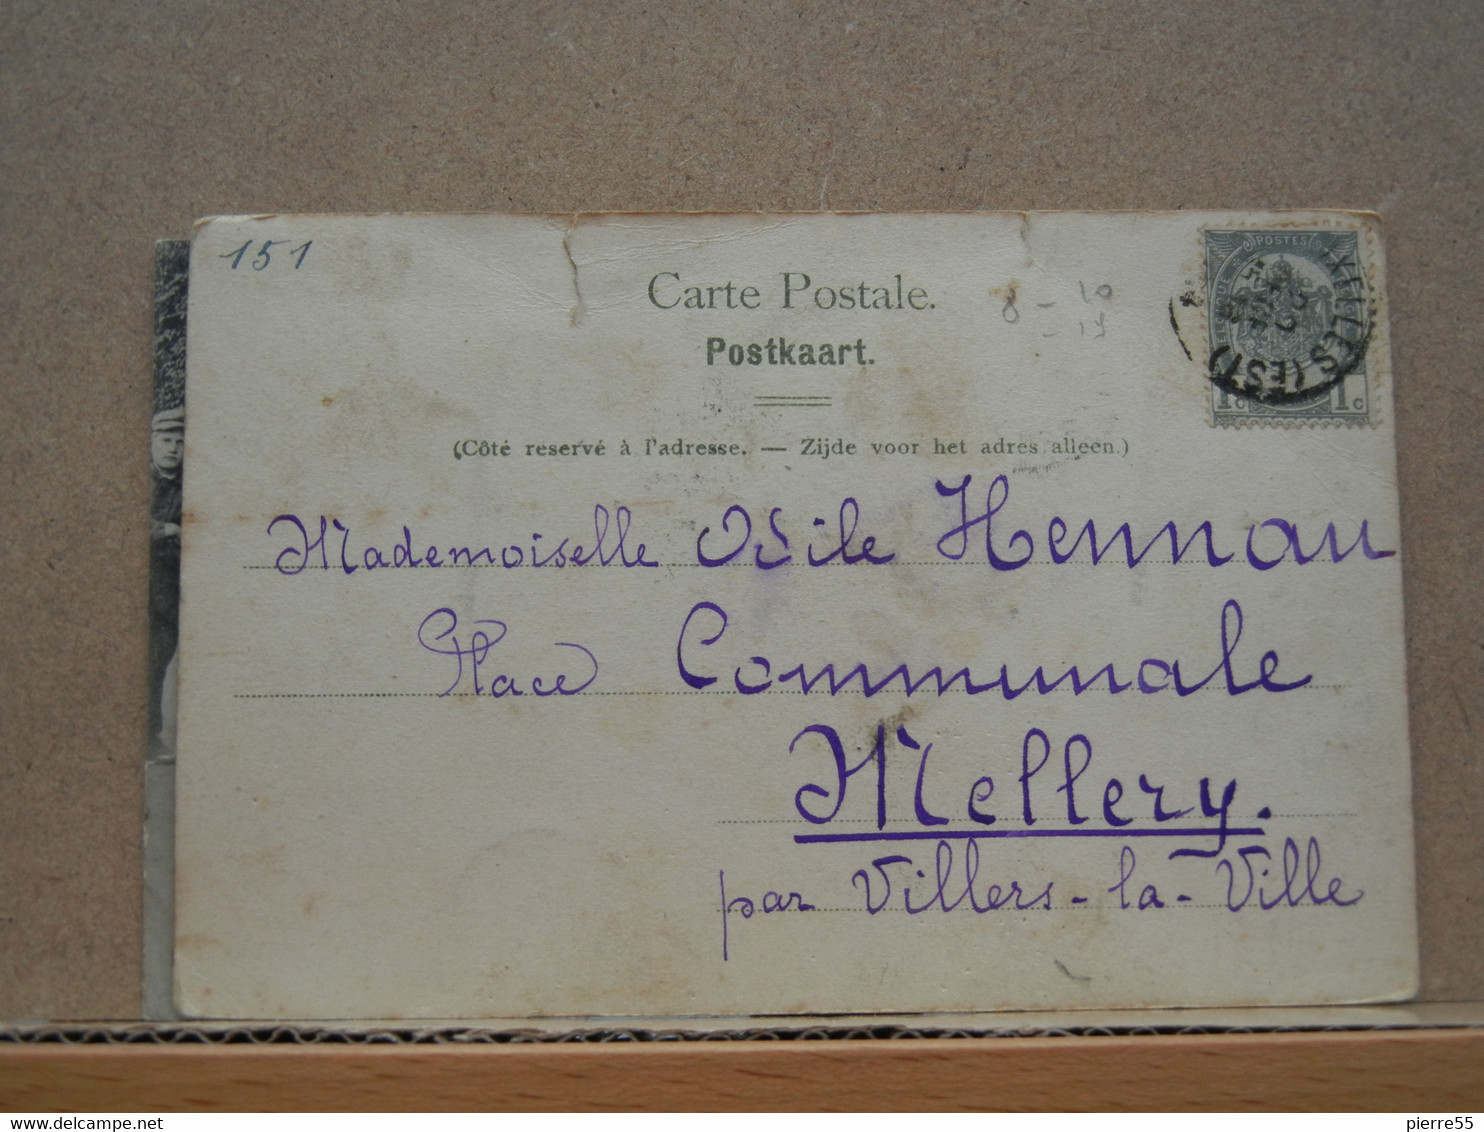 151
Carte Postale.
8 - 10
- 15
Postkaart.
POSTES
IXELLES (EST)
1c 1c
(Côté reservé à l'adresse. — Zijde voor het adres alleen.)
Mademoiselle Odile Hennau
Place Communale
Mellery.
par Villers-la-Ville
pierre55